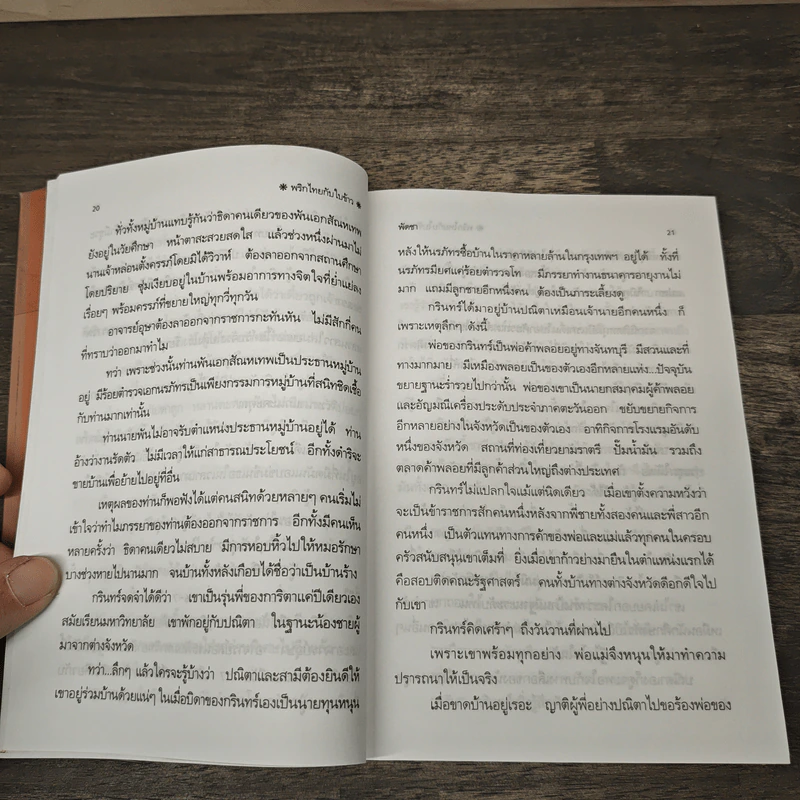 20
❋ พริกไทยกับใบข้าว ❋
ทั่วทั้งหมู่บ้านแทบรู้กันว่าธิดาคนเดียวของพันเอกสัณหเทพ
ยังอยู่ในวัยศึกษา หน้าตาสะสวยสดใส แล้วช่วงหนึ่งผ่านมาไม่
นานเจ้าหล่อนตั้งครรภ์โดยมิได้วิวาห์ ต้องลาออกจากสถานศึกษา
โดยปริยาย ซุ่มเงียบอยู่ในบ้านพร้อมอาการทางจิตใจที่ย่ำแย่ลง
เรื่อยๆ พร้อมครรภ์ที่ขยายใหญ่ทุกวี่ทุกวัน
อาจารย์อุษาต้องลาออกจากราชการกะทันหัน ไม่มีสักกี่คน
ที่ทราบว่าออกมาทำไม
ทว่า เพราะช่วงนั้นท่านพันเอกสัณหเทพเป็นประธานหมู่บ้าน
อยู่ มีร้อยตำรวจเอกนรภัทรเป็นเพียงกรรมการหมู่บ้านที่สนิทชิดเชื้อ
กับท่านมากเท่านั้น
ท่านนายพันไม่อาจรับตำแหน่งประธานหมู่บ้านอยู่ได้ ท่าน
อ้างว่างานรัดตัว ไม่มีเวลาให้แก่สาธารณประโยชน์ อีกทั้งดำริจะ
ขายบ้านเพื่อย้ายไปอยู่ที่อื่น
เหตุผลของท่านก็พอฟังได้แต่คนสนิทด้วยหลายๆ คนเริ่มไม่
เข้าใจว่าทำไมภรรยาของท่านต้องออกจากราชการ อีกทั้งมีคนเห็น
หลายครั้งว่า ธิดาคนเดียวไม่สบาย มีการหอบหิ้วไปให้หมอรักษา
บางช่วงหายไปนานมาก จนบ้านทั้งหลังเกือบได้ชื่อว่าเป็นบ้านร้าง
กรินทร์จดจำได้ดีว่า เขาเป็นรุ่นพี่ของการิตาแค่ปีเดียวเอง
สมัยเรียนมหาวิทยาลัย เขาพักอยู่กับปณิตา ในฐานะน้องชายผู้
มาจากต่างจังหวัด
ทว่า...ลึกๆ แล้วใครจะรู้บ้างว่า ปณิตาและสามีต้องยินดีให้
เขาอยู่ร่วมบ้านด้วยแน่ๆ ในเมื่อบิดาของกรินทร์เองเป็นนายทุนหนุน
พัดชา
21
หลังให้นรภัทรซื้อบ้านในราคาหลายล้านในกรุงเทพฯ อยู่ได้ ทั้งที่
นรภัทรมียศแค่ร้อยตำรวจโท มีภรรยาทำงานธนาคารอายุงานไม่
มาก แถมมีลูกชายอีกหนึ่งคน ต้องเป็นภาระเลี้ยงดู
กรินทร์ได้มาอยู่บ้านปณิตาเหมือนเจ้านายอีกคนหนึ่ง ก็
เพราะเหตุลึกๆ ดังนี้
พ่อของกรินทร์เป็นพ่อค้าพลอยอยู่ทางจันทบุรี มีสวนและที่
ทางมากมาย มีเหมืองพลอยเป็นของตัวเองอีกหลายแห่ง...ปัจจุบัน
ขยายฐานะร่ำรวยไปกว่านั้น พ่อของเขาเป็นนายกสมาคมผู้ค้าพลอย
และอัญมณีเครื่องประดับประจำภาคตะวันออก ขยับขยายกิจการ
อีกหลายอย่างในจังหวัดเป็นของตัวเอง อาทิกิจการโรงแรมอันดับ
หนึ่งของจังหวัด สถานที่ท่องเที่ยวยามราตรี ปั๊มน้ำมัน รวมถึง
ตลาดค้าพลอยที่มีลูกค้าส่วนใหญ่ถึงต่างประเทศ
กรินทร์ไม่แปลกใจแม้แต่นิดเดียว เมื่อเขาตั้งความหวังว่า
จะเป็นข้าราชการสักคนหนึ่งหลังจากพี่ชายทั้งสองคนและพี่สาวอีก
คนหนึ่ง เป็นตัวแทนทางการค้าของพ่อและแม่แล้วทุกคนในครอบ
ครัวสนับสนุนเขาเต็มที่ ยิ่งเมื่อเขาก้าวย่างมายืนในตำแหน่งแรกได้
คือสอบติดคณะรัฐศาสตร์ คนทั้งบ้านทางต่างจังหวัดดีอกดีใจไป
กับเขา
กรินทร์คิดเศร้าๆ ถึงวันวานที่ผ่านไป
เพราะเขาพร้อมทุกอย่าง พ่อแม่จึงหนุนให้มาทำความ
ปรารถนาให้เป็นจริง
เมื่อขาดบ้านอยู่เรอะ ญาติผู้พี่อย่างปณิตาไปขอร้องพ่อของ